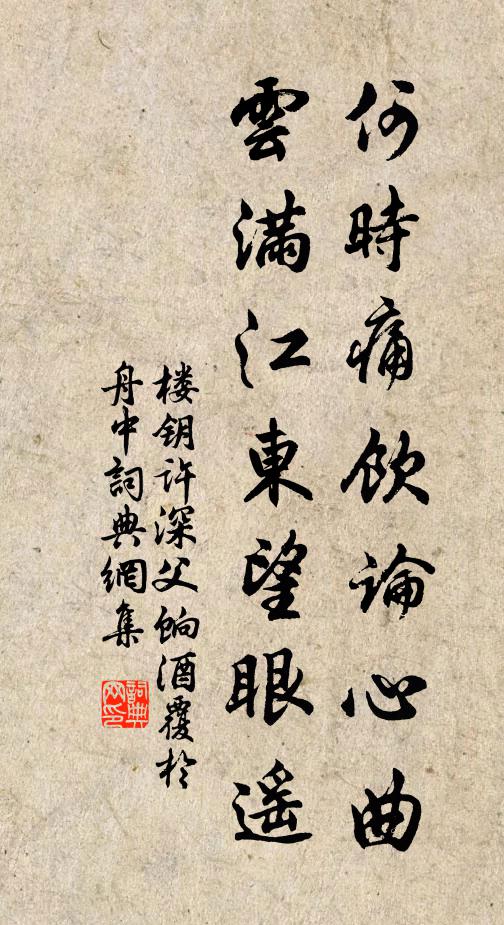 何時痛飲論心曲
雲滿江東望眼遥
楼钥许深父餉酒覆於
舟中詞典網集
詞典
网印